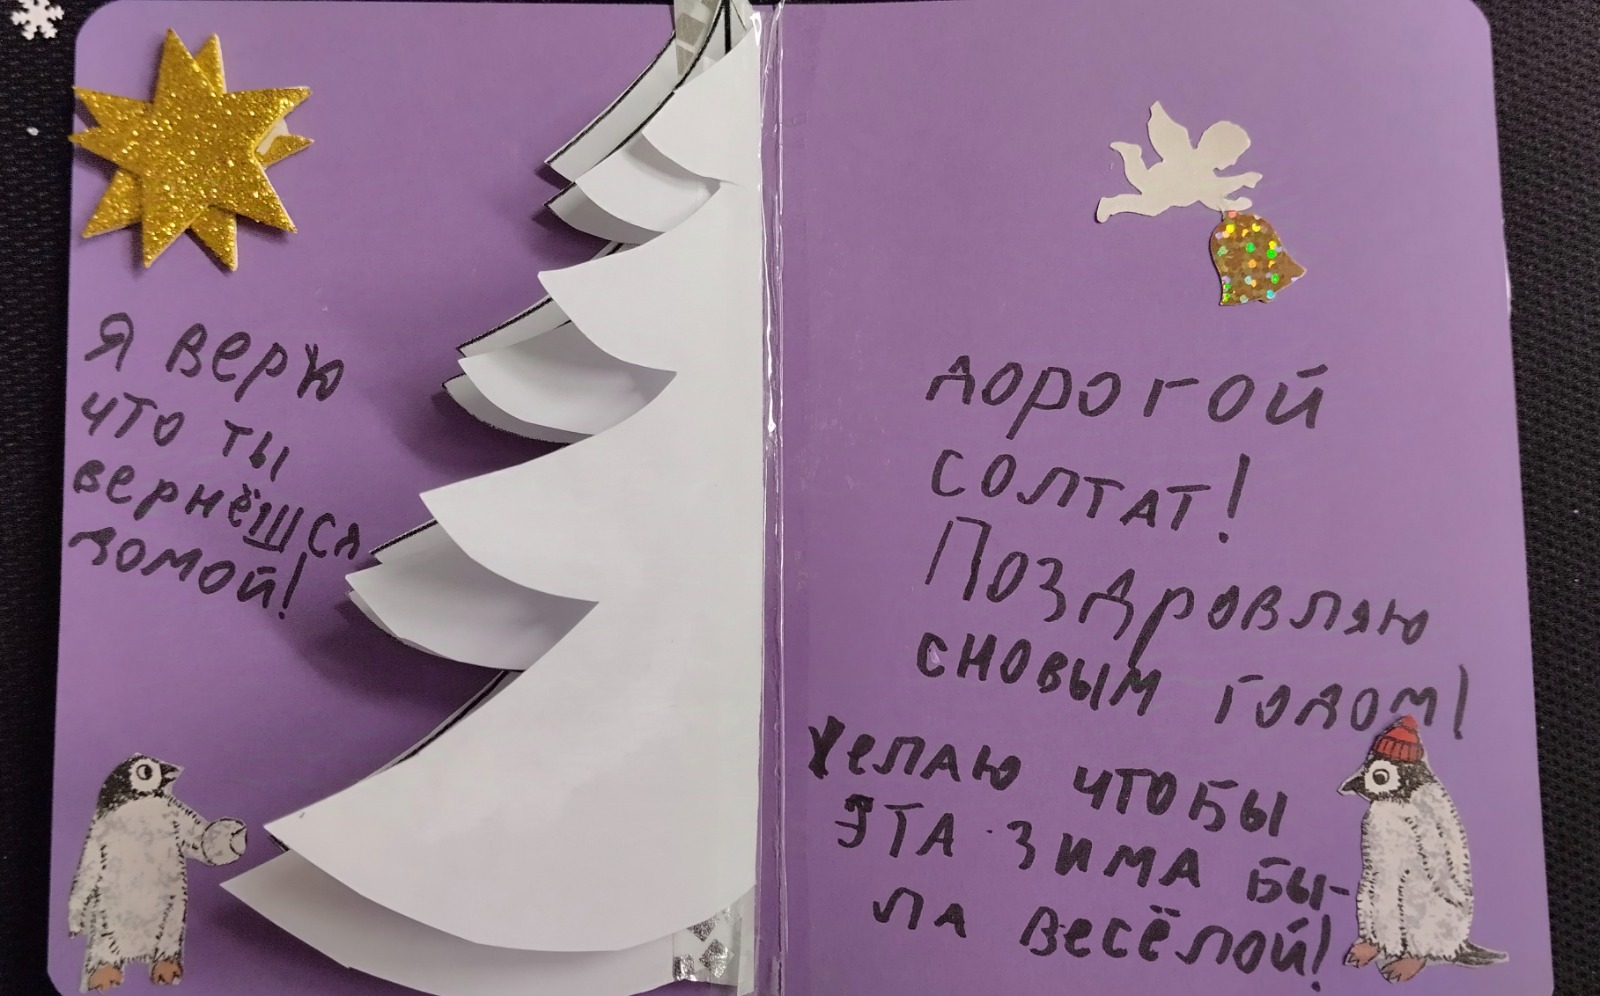 Я верю
что ты
вернёшся
домой!
дорогой
солтат!
Поздровляю
сновым годом!
желаю чтобы
эта зима бы-
ла весёлой!